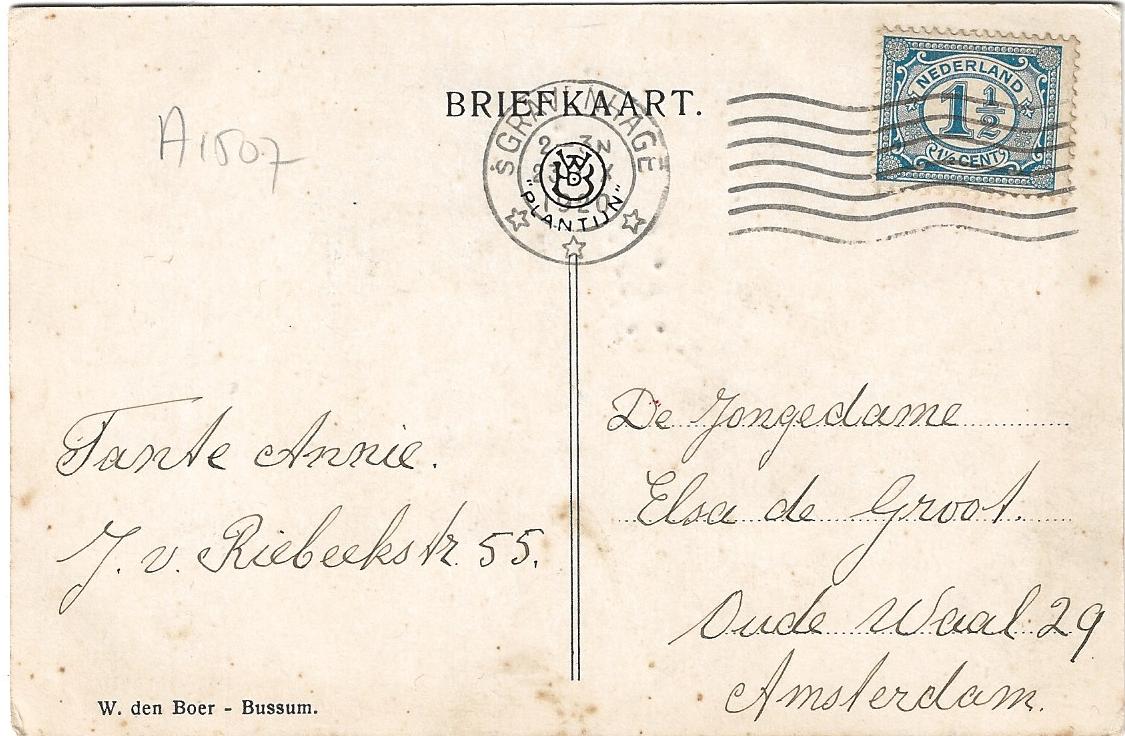 A1507
BRIEFKAART.
'S GRAVENHAGE
2 - 3N
1920
WB
"PLANTIJN"
NEDERLAND
1 1/2
1½ CENT
Tante Annie.
J. v. Riebeekstr. 55.
W. den Boer - Bussum.
De Jongedame
Elsa de Groot.
Oude Waal 29
Amsterdam.